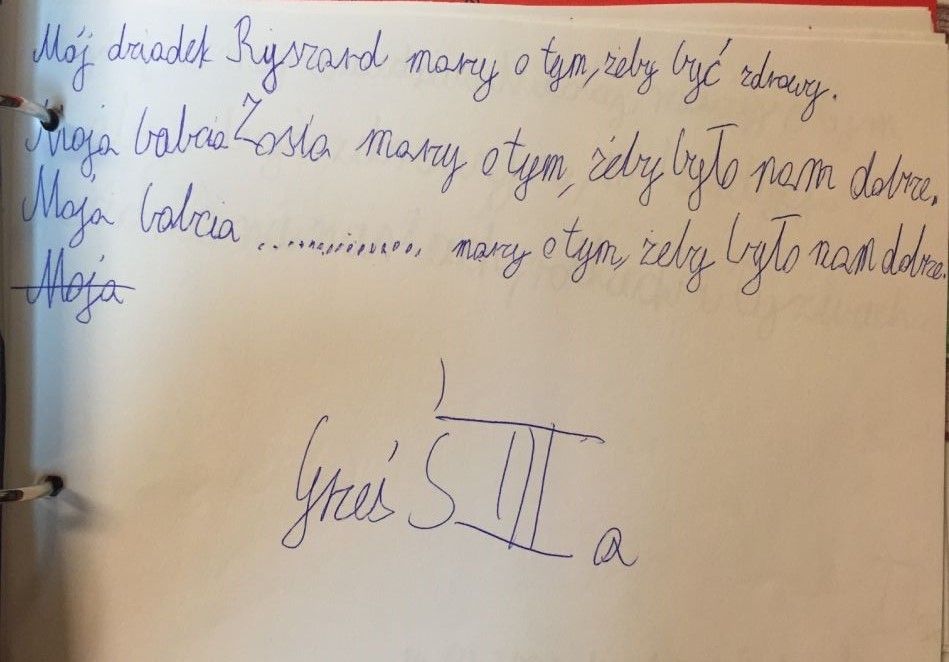 Mój dziadek Ryszard marzy o tym, żeby być zdrowy.
Moja babcia Zosia marzy o tym, żeby było nam dobrze.
Moja babcia .................... marzy o tym, żeby było nam dobrze.
Moja
Grześ Ś III a